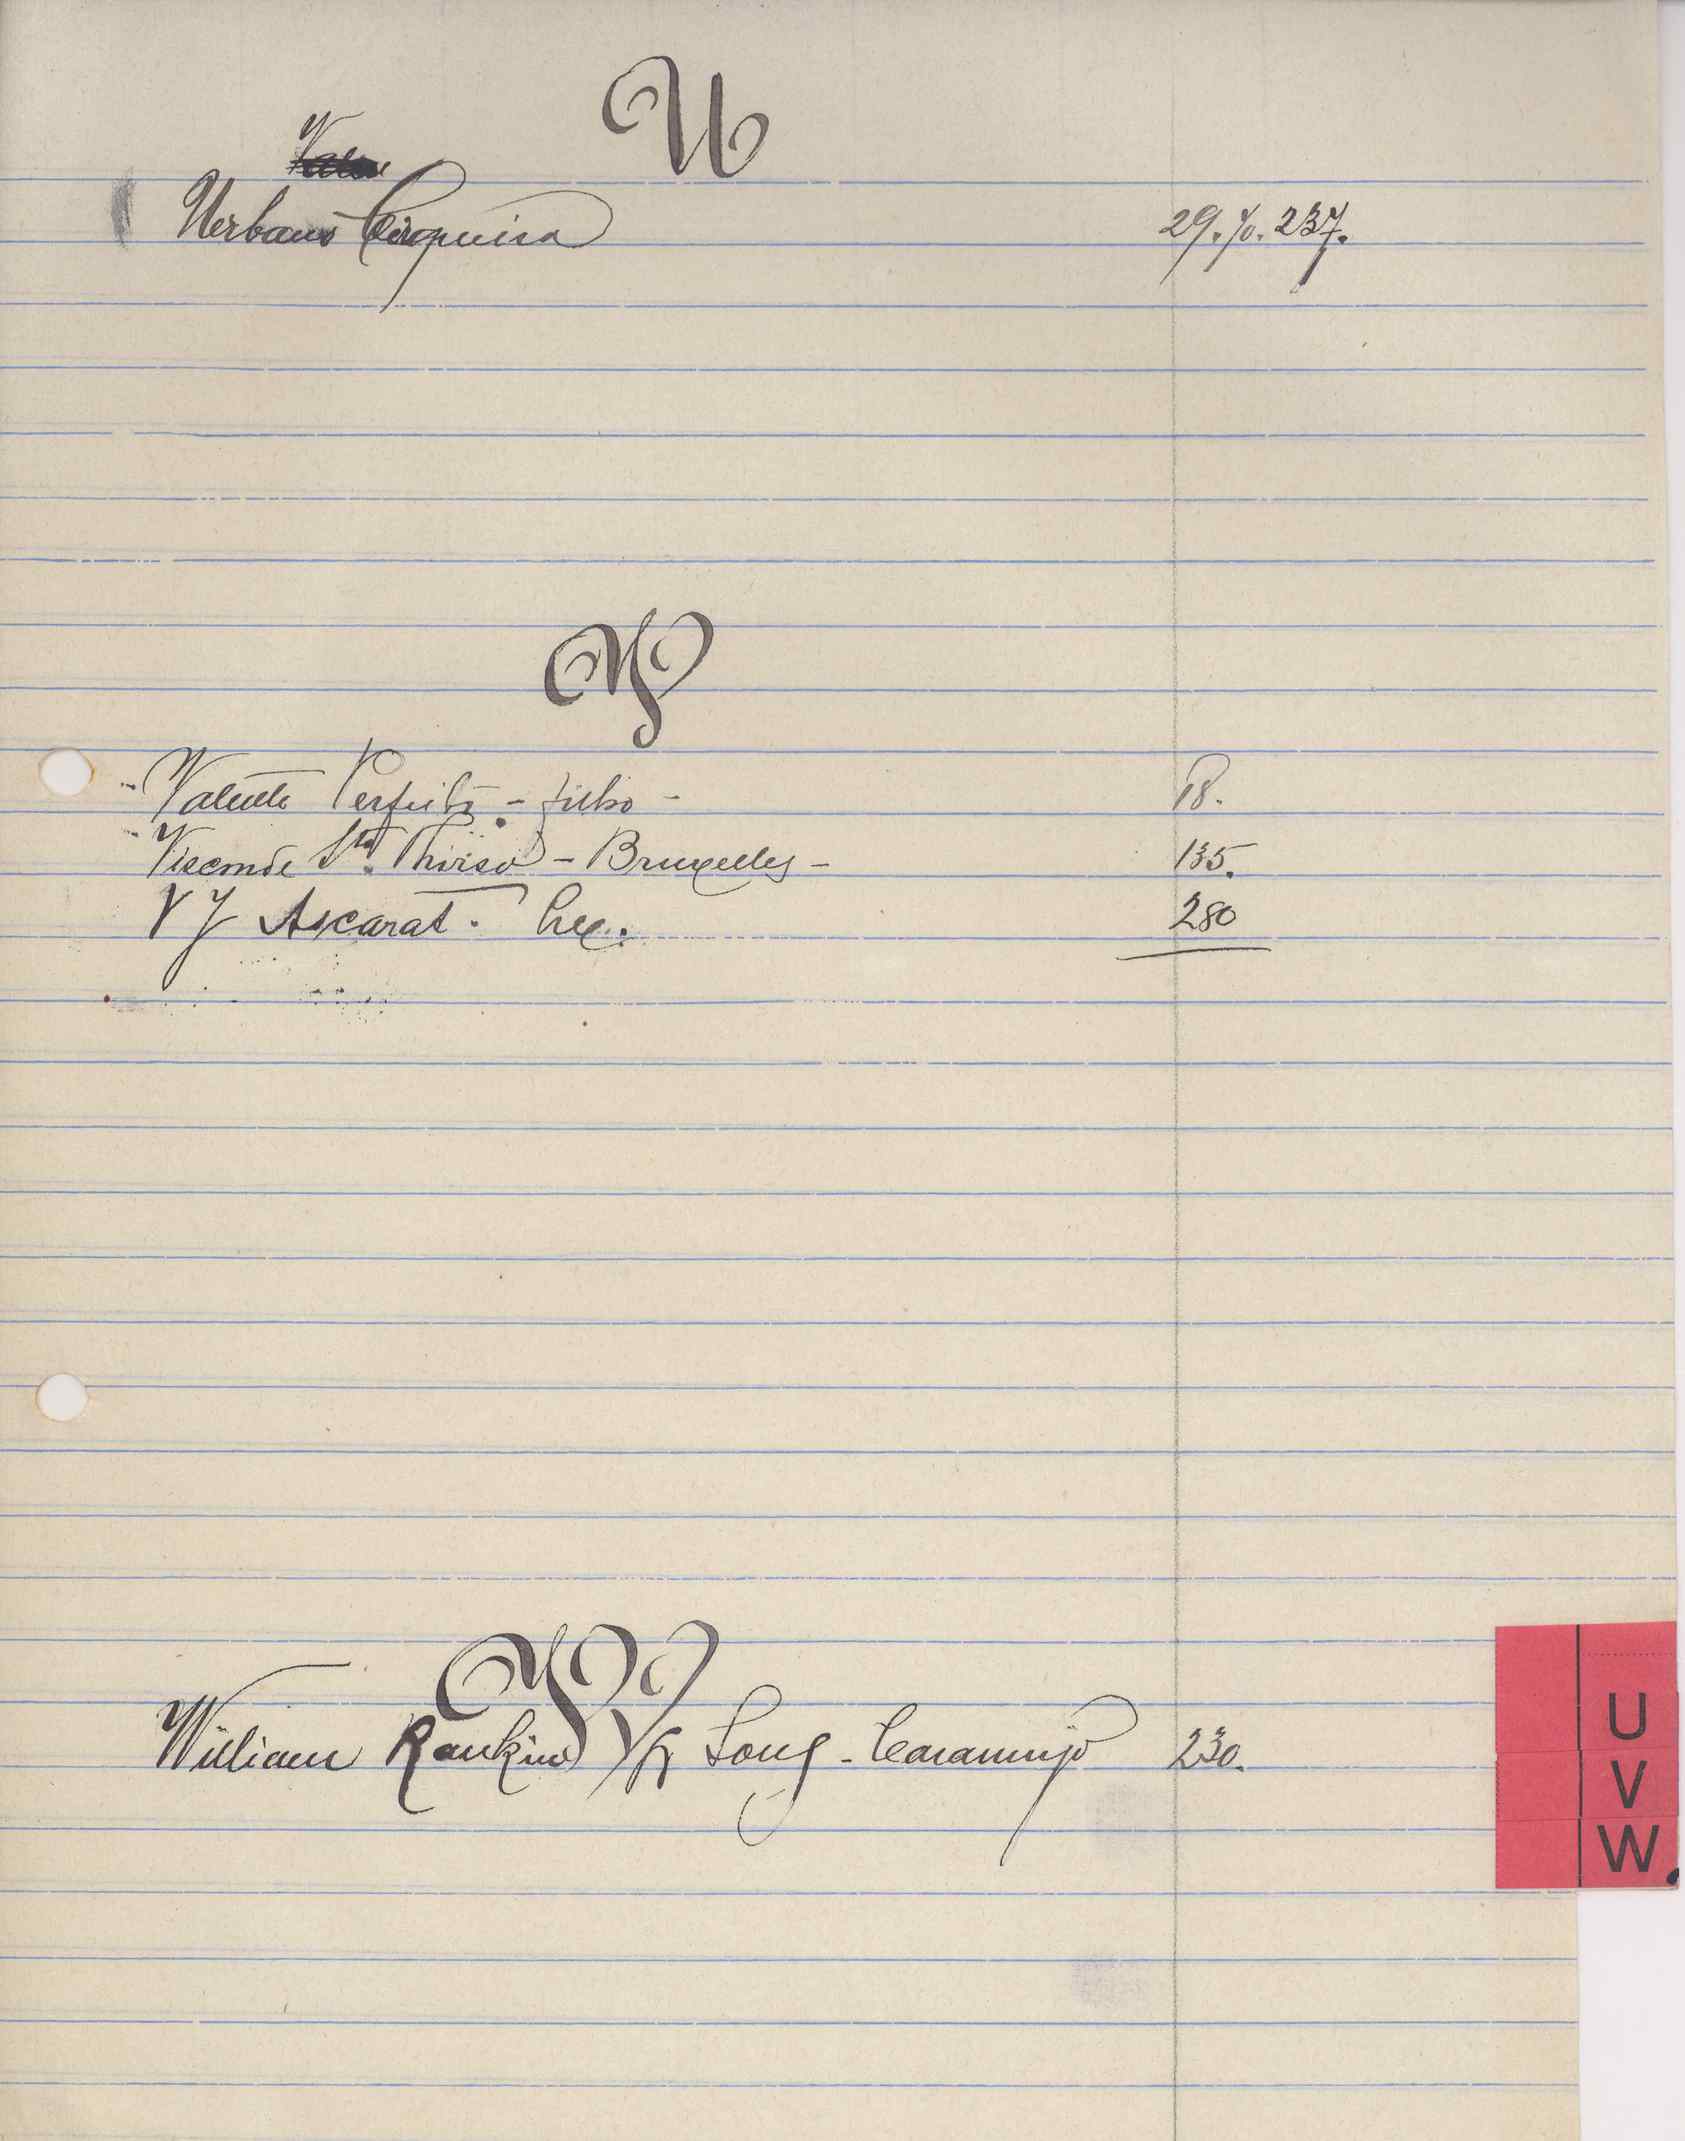 U
Urbano Cerqueira
29. 70. 237.
V
Valente Perfeito - filho - 18.
Visconde Sto. Thirso - Bruxelles - 135.
V J Ascarat. 280
W
William Rankin Long - Caramujo 230.
U
V
W.